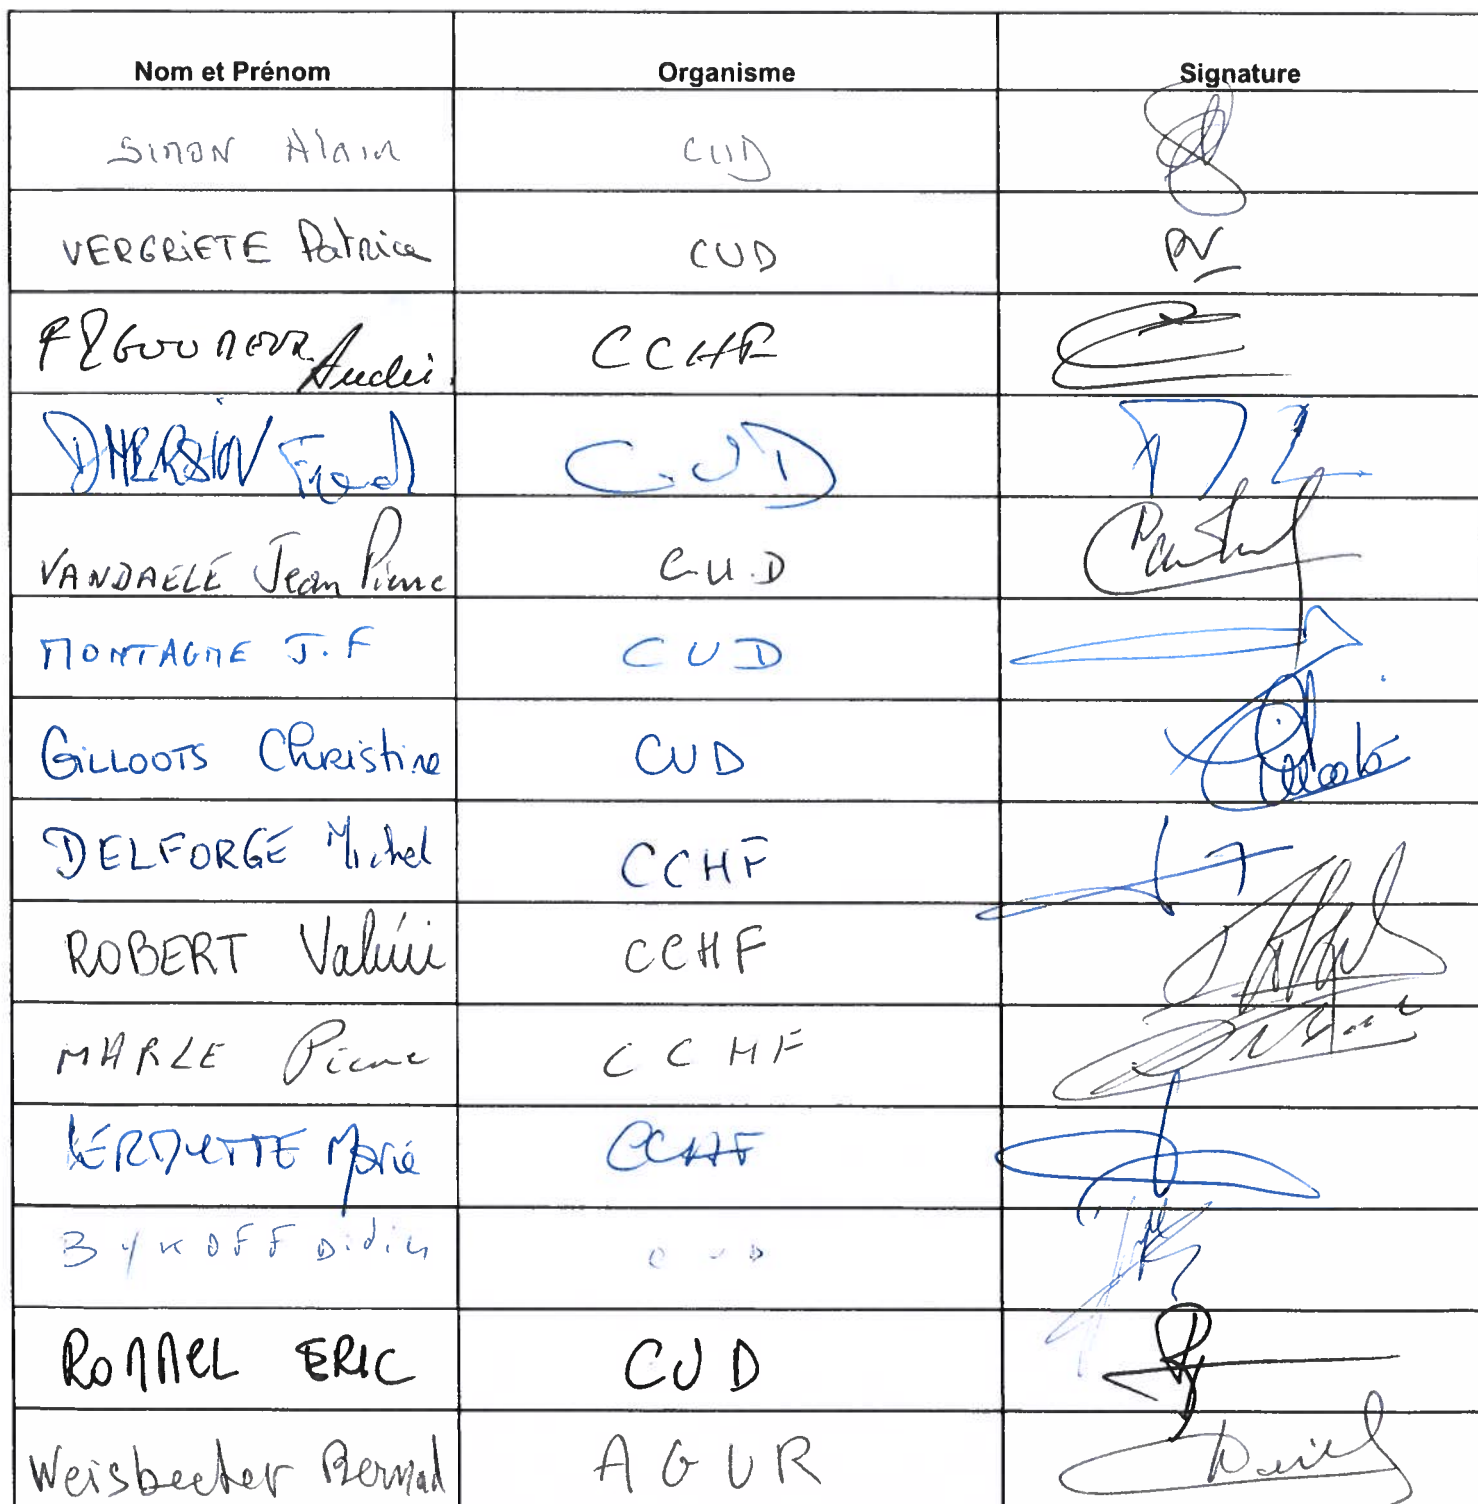 Nom et Prénom Organisme Signature
SIMON Alain CUD
VERGRIETE Patrice CUD PV
André CCHF
Fred C.U.D
VANDAELE Jean Pierre C.U.D
MONTAGNE J.F CUD
GILLOOTS Christine CUD
DELFORGE Michel CCHF
ROBERT Valérie CCHF
MARLE Pierre CCHF
CCHF
BYKOFF Didier
ROMMEL ERIC CUD
Weisbecker Bernard AGUR